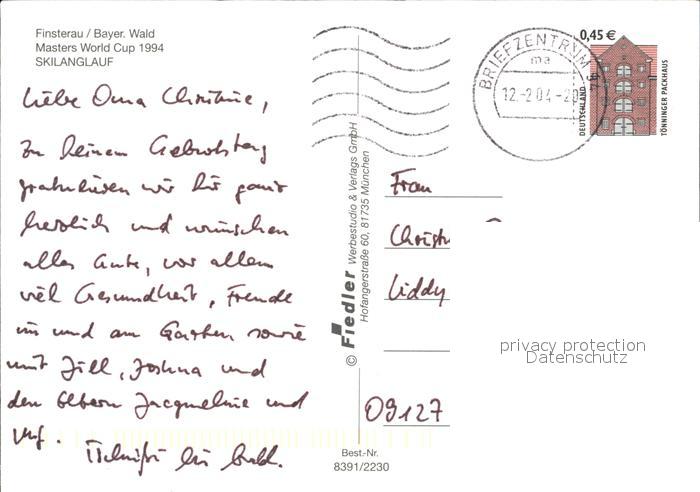 Finsterau / Bayer. Wald
Masters World Cup 1994
SKILANGLAUF
Liebe Oma Christine,
zu Deinem Geburtstag
gratulieren wir Dir ganz
herzlich und wünschen
alles Gute, vor allem
viel Gesundheit, Freude
im und am Garten sowie
mit Jill, Joshua und
den Eltern Jacqueline und
Tschüß bis bald.
© Fiedler Werbestudio & Verlags GmbH
Hofangerstraße 60, 81735 München
Best.-Nr.
8391/2230
BRIEFZENTRUM 94
ma
12.-2.04-20
0,45 €
DEUTSCHLAND
TÖNNINGER PACKHAUS
Frau
Christ
Liddy
09127
privacy protection
Datenschutz